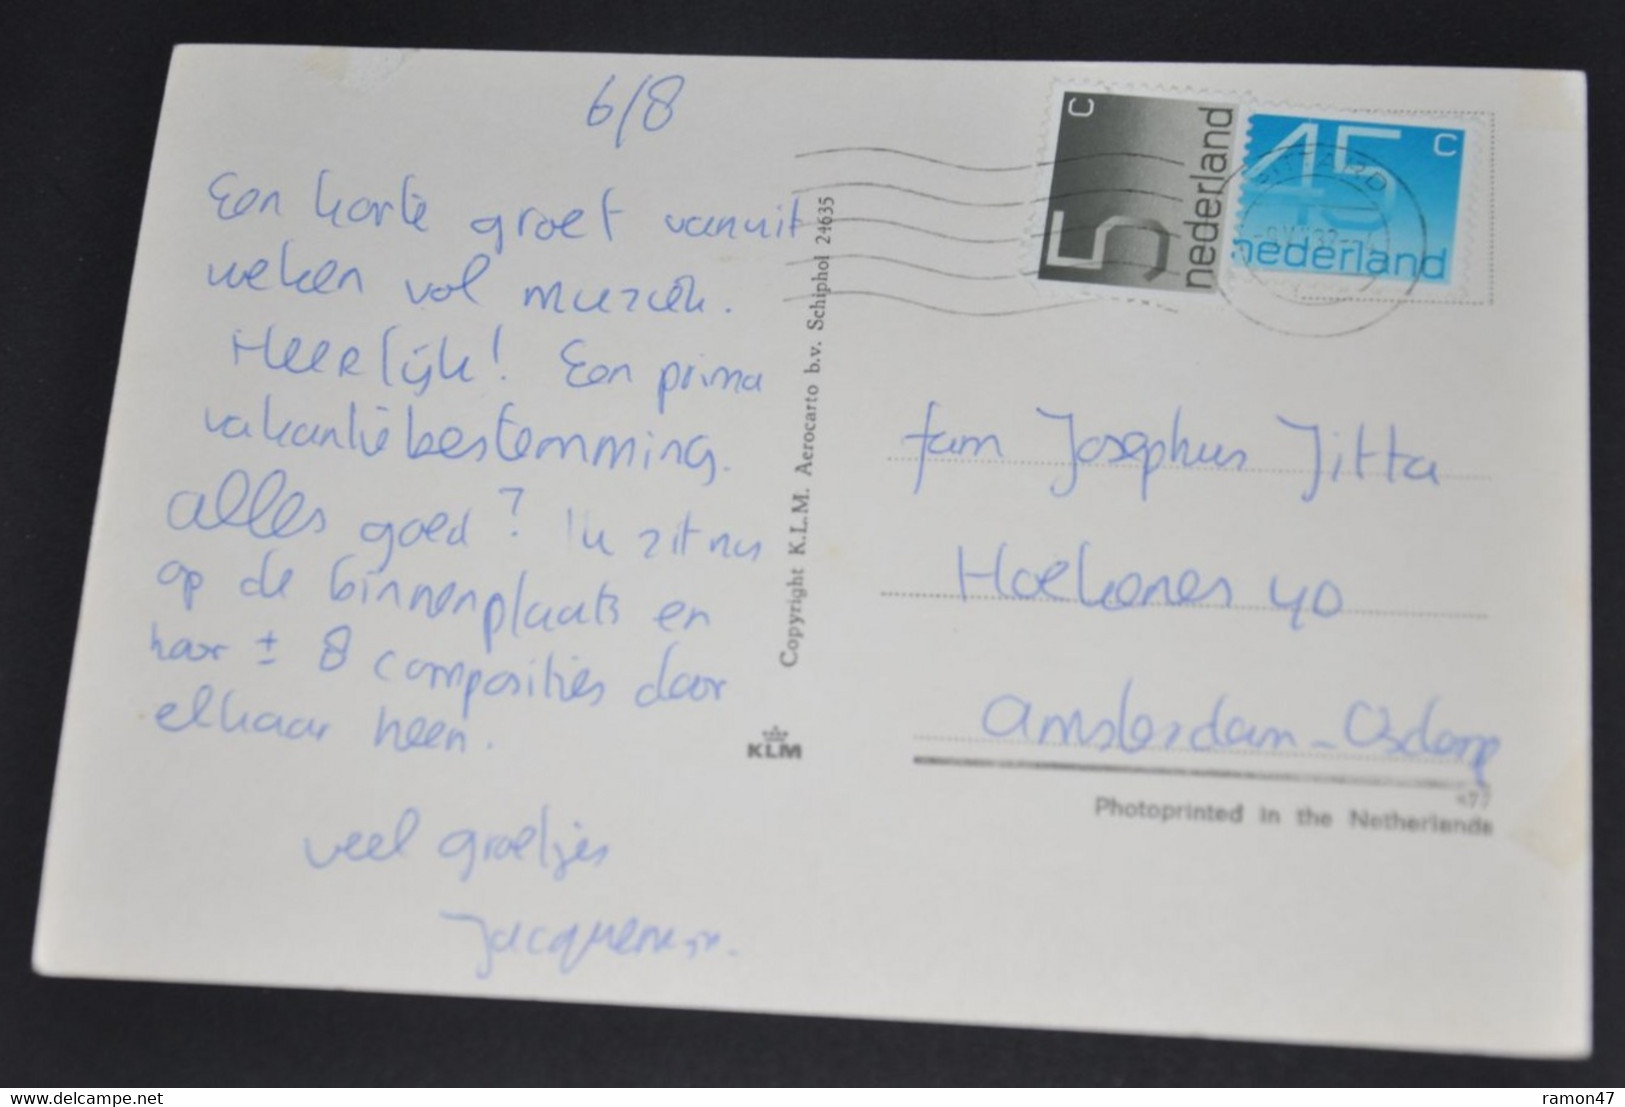 6/8
Een korte groet vanuit
weken vol muziek.
Heerlijk! Een prima
vakantiebestemming.
alles goed? Ik zit nu
op de binnenplaats en
hoor ± 8 composities door
elkaar heen.
veel groetjes
C
5
nederland
45 C
nederland
SITTARD
fam Josephus Jitta
Hoekenes 40
Amsterdam-Osdorp
Copyright K.L.M. Aerocarto b.v. Schiphol 24635
KLM
Photoprinted in the Netherlands
delcampe.net
ramon47